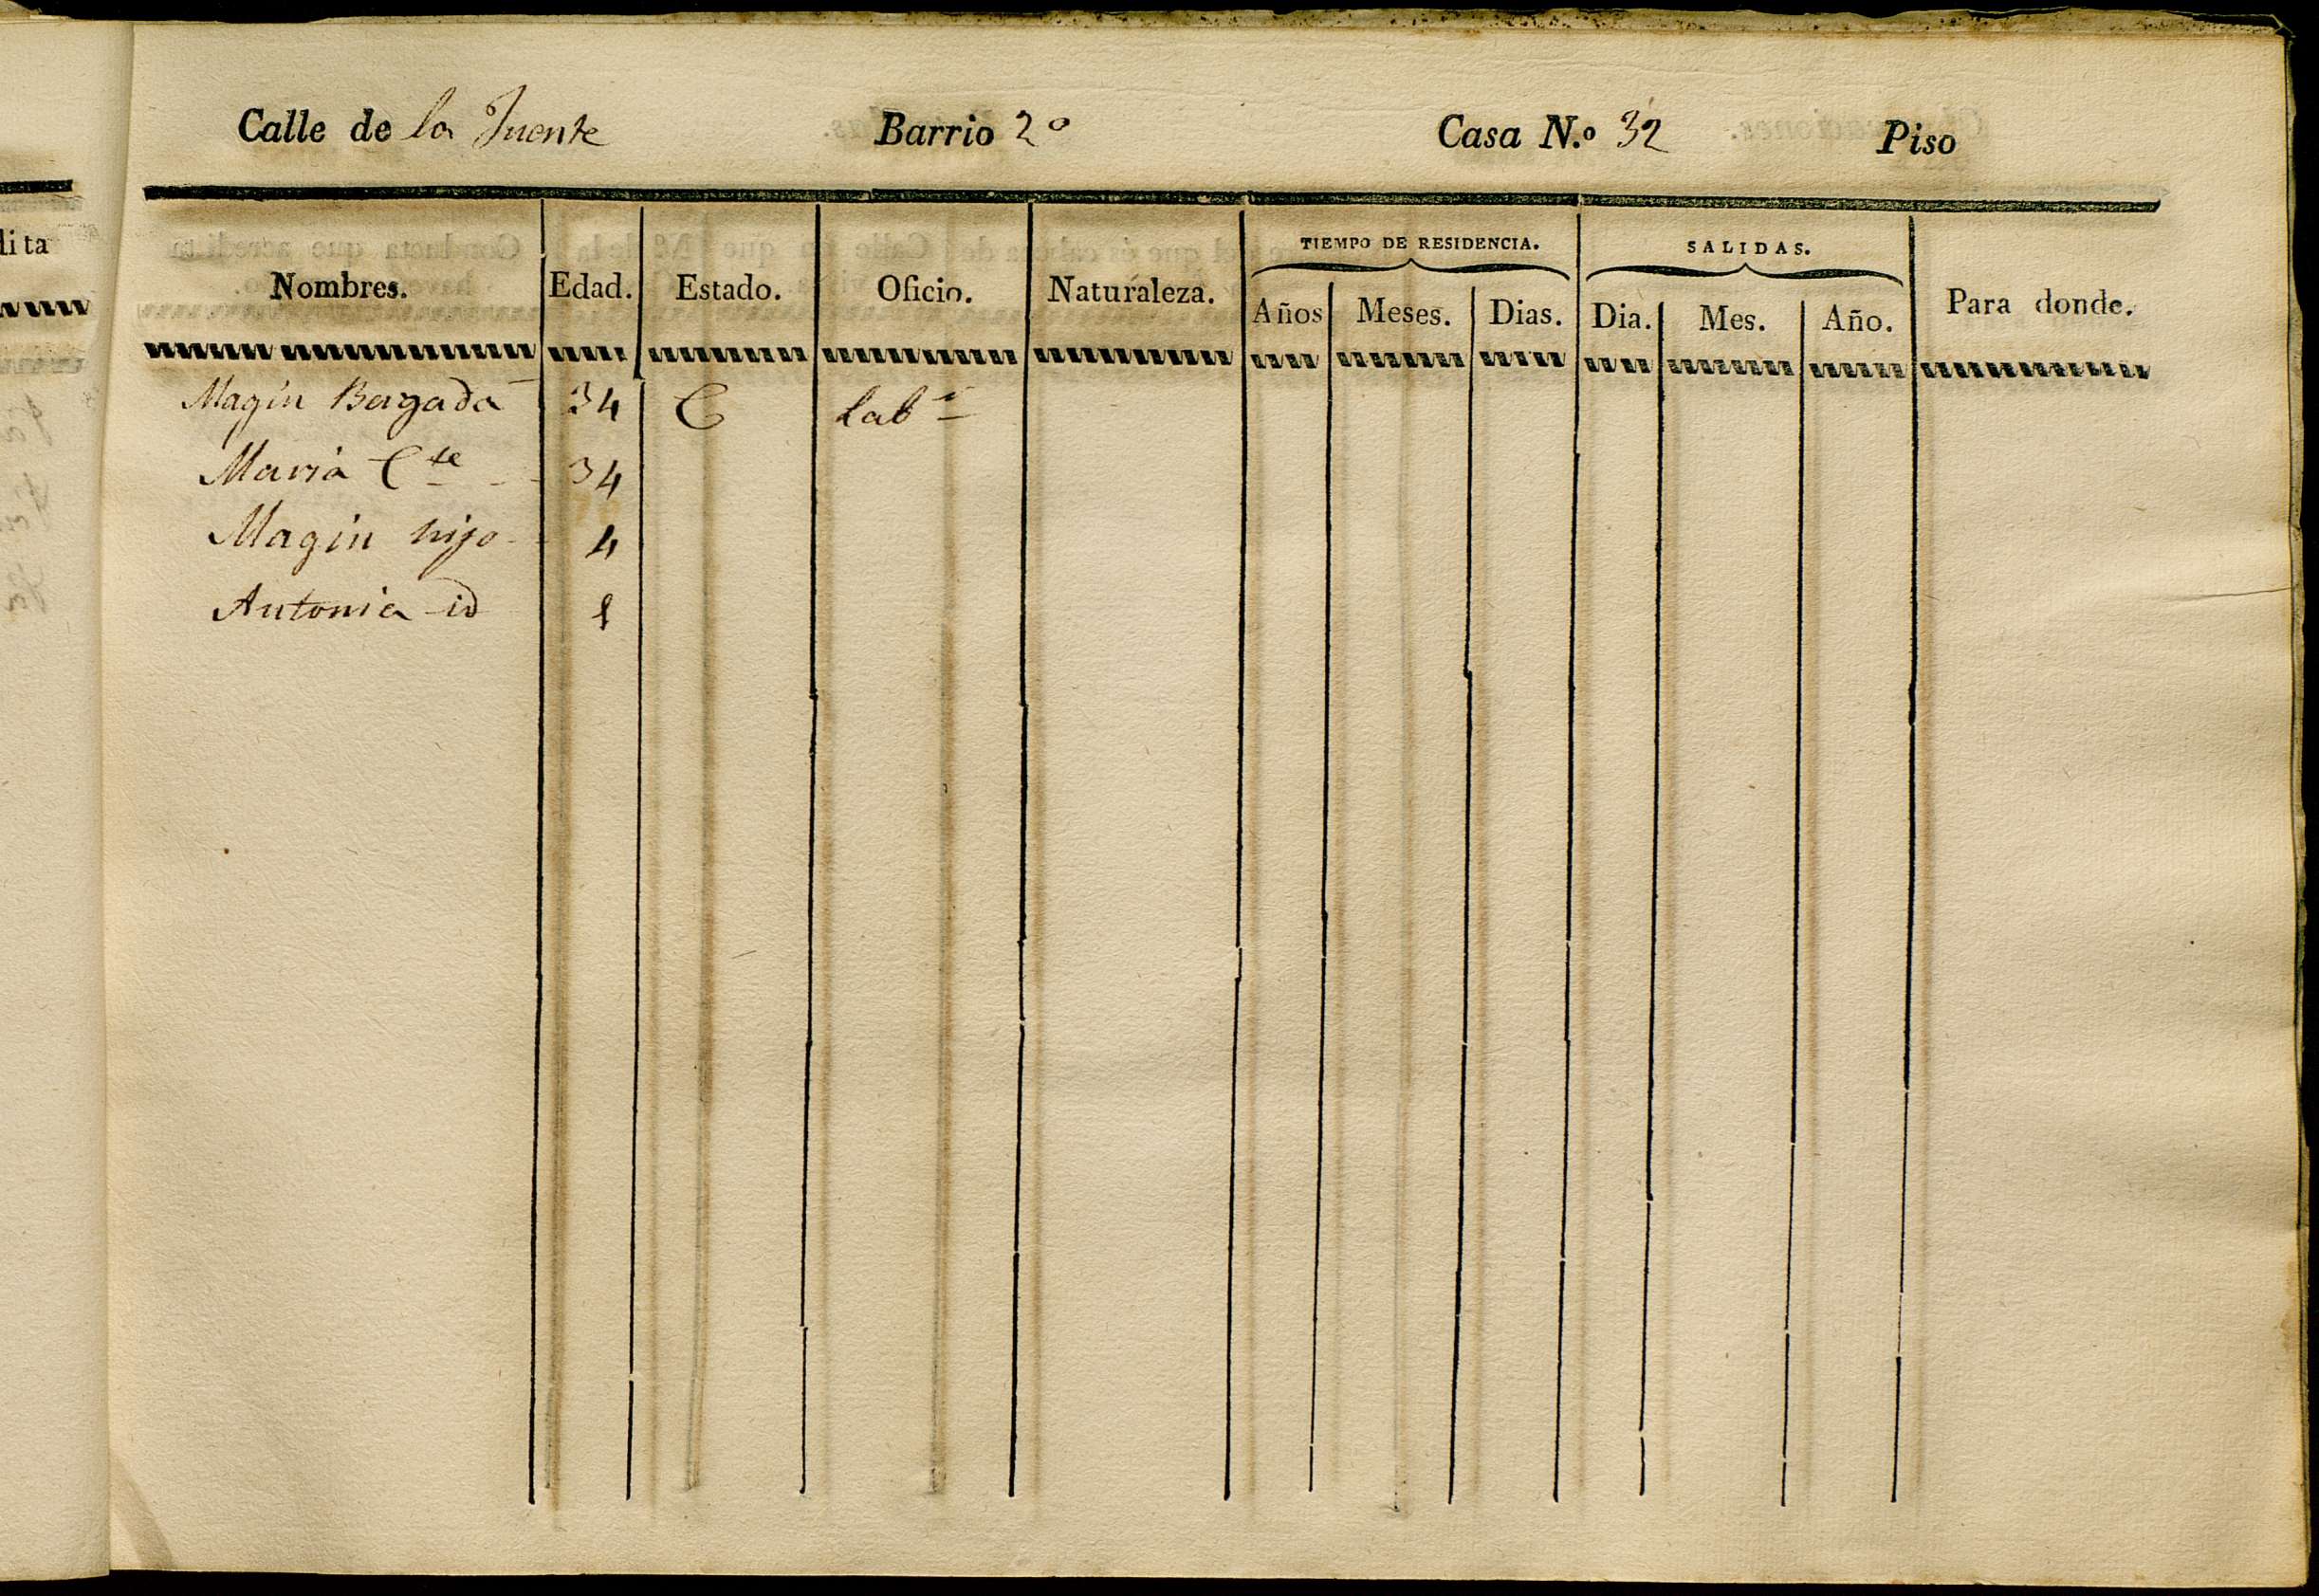 Calle de la Fuente Barrio 2º Casa N.º 32 Piso
dita
TIEMPO DE RESIDENCIA. SALIDAS.
Nombres. Edad. Estado. Oficio. Naturaleza. Años Meses. Dias. Dia. Mes. Año. Para donde.
Magin Bagada 34 C Labr
Maria Cte 34
Magin hijo 4
Antonia id 1